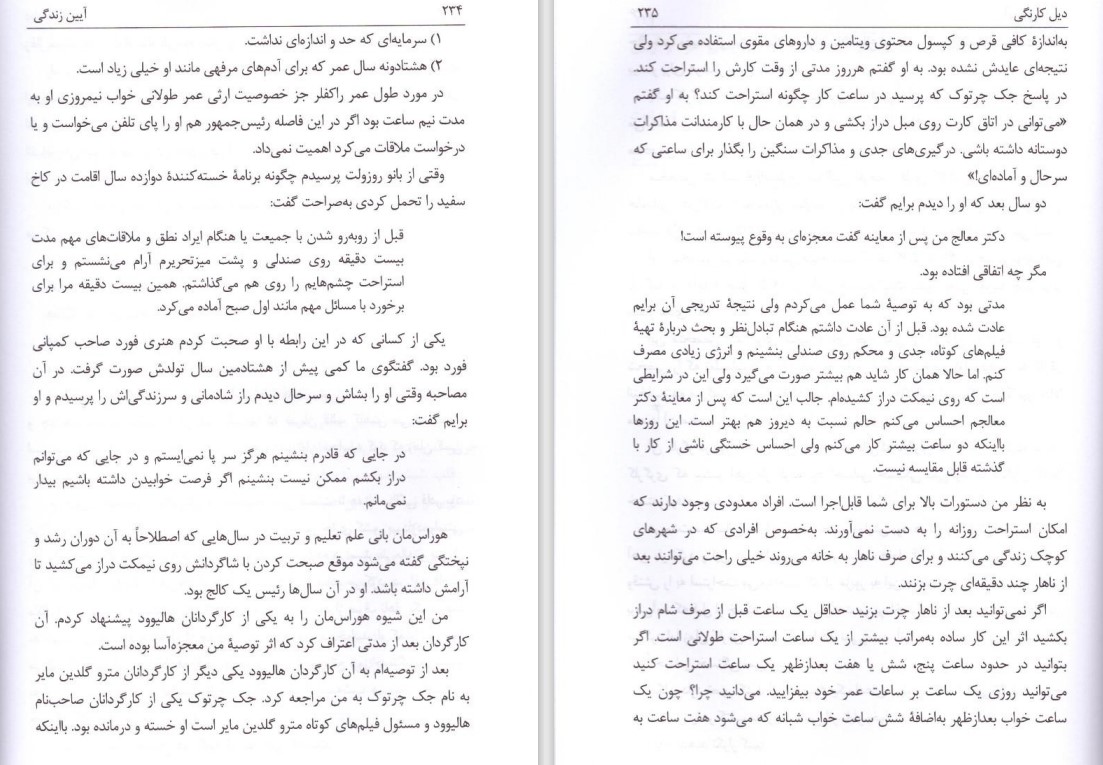 ۲۳۴ آیین زندگی
۱) سرمایه‌ای که حد و اندازه‌ای نداشت.
۲) هشتادونه سال عمر که برای آدم‌های مرفهی مانند او خیلی زیاد است.
در مورد طول عمر راکفلر جز خصوصیت ارثی عمر طولانی خواب نیمروزی او به
مدت نیم ساعت بود اگر در این فاصله رئیس‌جمهور هم او را پای تلفن می‌خواست و یا
درخواست ملاقات می‌کرد اهمیت نمی‌داد.
وقتی از بانو روزولت پرسیدم چگونه برنامهٔ خسته‌کنندهٔ دوازده سال اقامت در کاخ
سفید را تحمل کردی به‌صراحت گفت:
قبل از روبه‌رو شدن با جمیعت یا هنگام ایراد نطق و ملاقات‌های مهم مدت
بیست دقیقه روی صندلی و پشت میزتحریرم آرام می‌نشستم و برای
استراحت چشم‌هایم را روی هم می‌گذاشتم. همین بیست دقیقه مرا برای
برخورد با مسائل مهم مانند اول صبح آماده می‌کرد.
یکی از کسانی که در این رابطه با او صحبت کردم هنری فورد صاحب کمپانی
فورد بود. گفتگوی ما کمی پیش از هشتادمین سال تولدش صورت گرفت. در آن
مصاحبه وقتی او را بشاش و سرحال دیدم راز شادمانی و سرزندگی‌اش را پرسیدم و او
برایم گفت:
در جایی که قادرم بنشینم هرگز سر پا نمی‌ایستم و در جایی که می‌توانم
دراز بکشم ممکن نیست بنشینم اگر فرصت خوابیدن داشته باشیم بیدار
نمی‌مانم.
هوراس‌مان بانی علم تعلیم و تربیت در سال‌هایی که اصطلاحاً به آن دوران رشد و
نپختگی گفته می‌شود موقع صبحت کردن با شاگردانش روی نیمکت دراز می‌کشید تا
آرامش داشته باشد. او در آن سال‌ها رئیس یک کالج بود.
من این شیوه هوراس‌مان را به یکی از کارگردانان هالیوود پیشنهاد کردم. آن
کارگردان بعد از مدتی اعتراف کرد که اثر توصیهٔ من معجزه‌آسا بوده است.
بعد از توصیه‌ام به آن کارگردان هالیوود یکی دیگر از کارگردانان مترو گلدین مایر
به نام جک چرتوک به من مراجعه کرد. جک چرتوک یکی از کارگردانان صاحب‌نام
هالیوود و مسئول فیلم‌های کوتاه مترو گلدین مایر است او خسته و درمانده بود. بااینکه
دیل کارنگی ۲۳۵
به‌اندازهٔ کافی قرص و کپسول محتوی ویتامین و داروهای مقوی استفاده می‌کرد ولی
نتیجه‌ای عایدش نشده بود. به او گفتم هرروز مدتی از وقت کارش را استراحت کند.
در پاسخ جک چرتوک که پرسید در ساعت کار چگونه استراحت کند؟ به او گفتم
«می‌توانی در اتاق کارت روی مبل دراز بکشی و در همان حال با کارمندانت مذاکرات
دوستانه داشته باشی. درگیری‌های جدی و مذاکرات سنگین را بگذار برای ساعتی که
سرحال و آماده‌ای!»
دو سال بعد که او را دیدم برایم گفت:
دکتر معالج من پس از معاینه گفت معجزه‌ای به وقوع پیوسته است!
مگر چه اتفاقی افتاده بود.
مدتی بود که به توصیهٔ شما عمل می‌کردم ولی نتیجهٔ تدریجی آن برایم
عادت شده بود. قبل از آن عادت داشتم هنگام تبادل‌نظر و بحث دربارهٔ تهیهٔ
فیلم‌های کوتاه، جدی و محکم روی صندلی بنشینم و انرژی زیادی مصرف
کنم. اما حالا همان کار شاید هم بیشتر صورت می‌گیرد ولی این در شرایطی
است که روی نیمکت دراز کشیده‌ام. جالب این است که پس از معاینهٔ دکتر
معالجم احساس می‌کنم حالم نسبت به دیروز هم بهتر است. این روزها
بااینکه دو ساعت بیشتر کار می‌کنم ولی احساس خستگی ناشی از کار با
گذشته قابل مقایسه نیست.
به نظر من دستورات بالا برای شما قابل‌اجرا است. افراد معدودی وجود دارند که
امکان استراحت روزانه را به دست نمی‌آورند. به‌خصوص افرادی که در شهرهای
کوچک زندگی می‌کنند و برای صرف ناهار به خانه می‌روند خیلی راحت می‌توانند بعد
از ناهار چند دقیقه‌ای چرت بزنند.
اگر نمی‌توانید بعد از ناهار چرت بزنید حداقل یک ساعت قبل از صرف شام دراز
بکشید اثر این کار ساده به‌مراتب بیشتر از یک ساعت استراحت طولانی است. اگر
بتوانید در حدود ساعت پنج، شش یا هفت بعدازظهر یک ساعت استراحت کنید
می‌توانید روزی یک ساعت بر ساعات عمر خود بیفزایید. می‌دانید چرا؟ چون یک
ساعت خواب بعدازظهر به‌اضافهٔ شش ساعت خواب شبانه که می‌شود هفت ساعت به